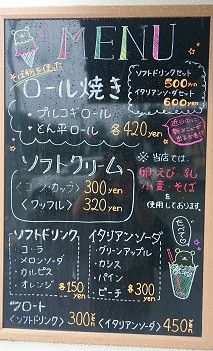 MENU
そば粉を使った
ロール焼き
・プルコギロール
・とん平ロール
各420yen
ソフトドリンクセット
500yen
イタリアンソーダセット
600yen
近日中に
新メニューが
出るかも!?
ソフトクリーム
〈コーン・カップ〉300yen
〈ワッフル〉320yen
※当店では、
卵・えび・乳
小麦・そば
使用しております。
ソフトドリンク
・コーラ
・メロンソーダ
・カルピス
・オレンジ
各150yen
イタリアンソーダ
・グリーンアップル
・カシス
・パイン
・ピーチ
各300yen
フロート
〈ソフトドリンク〉300yen
〈イタリアンソーダ〉450yen